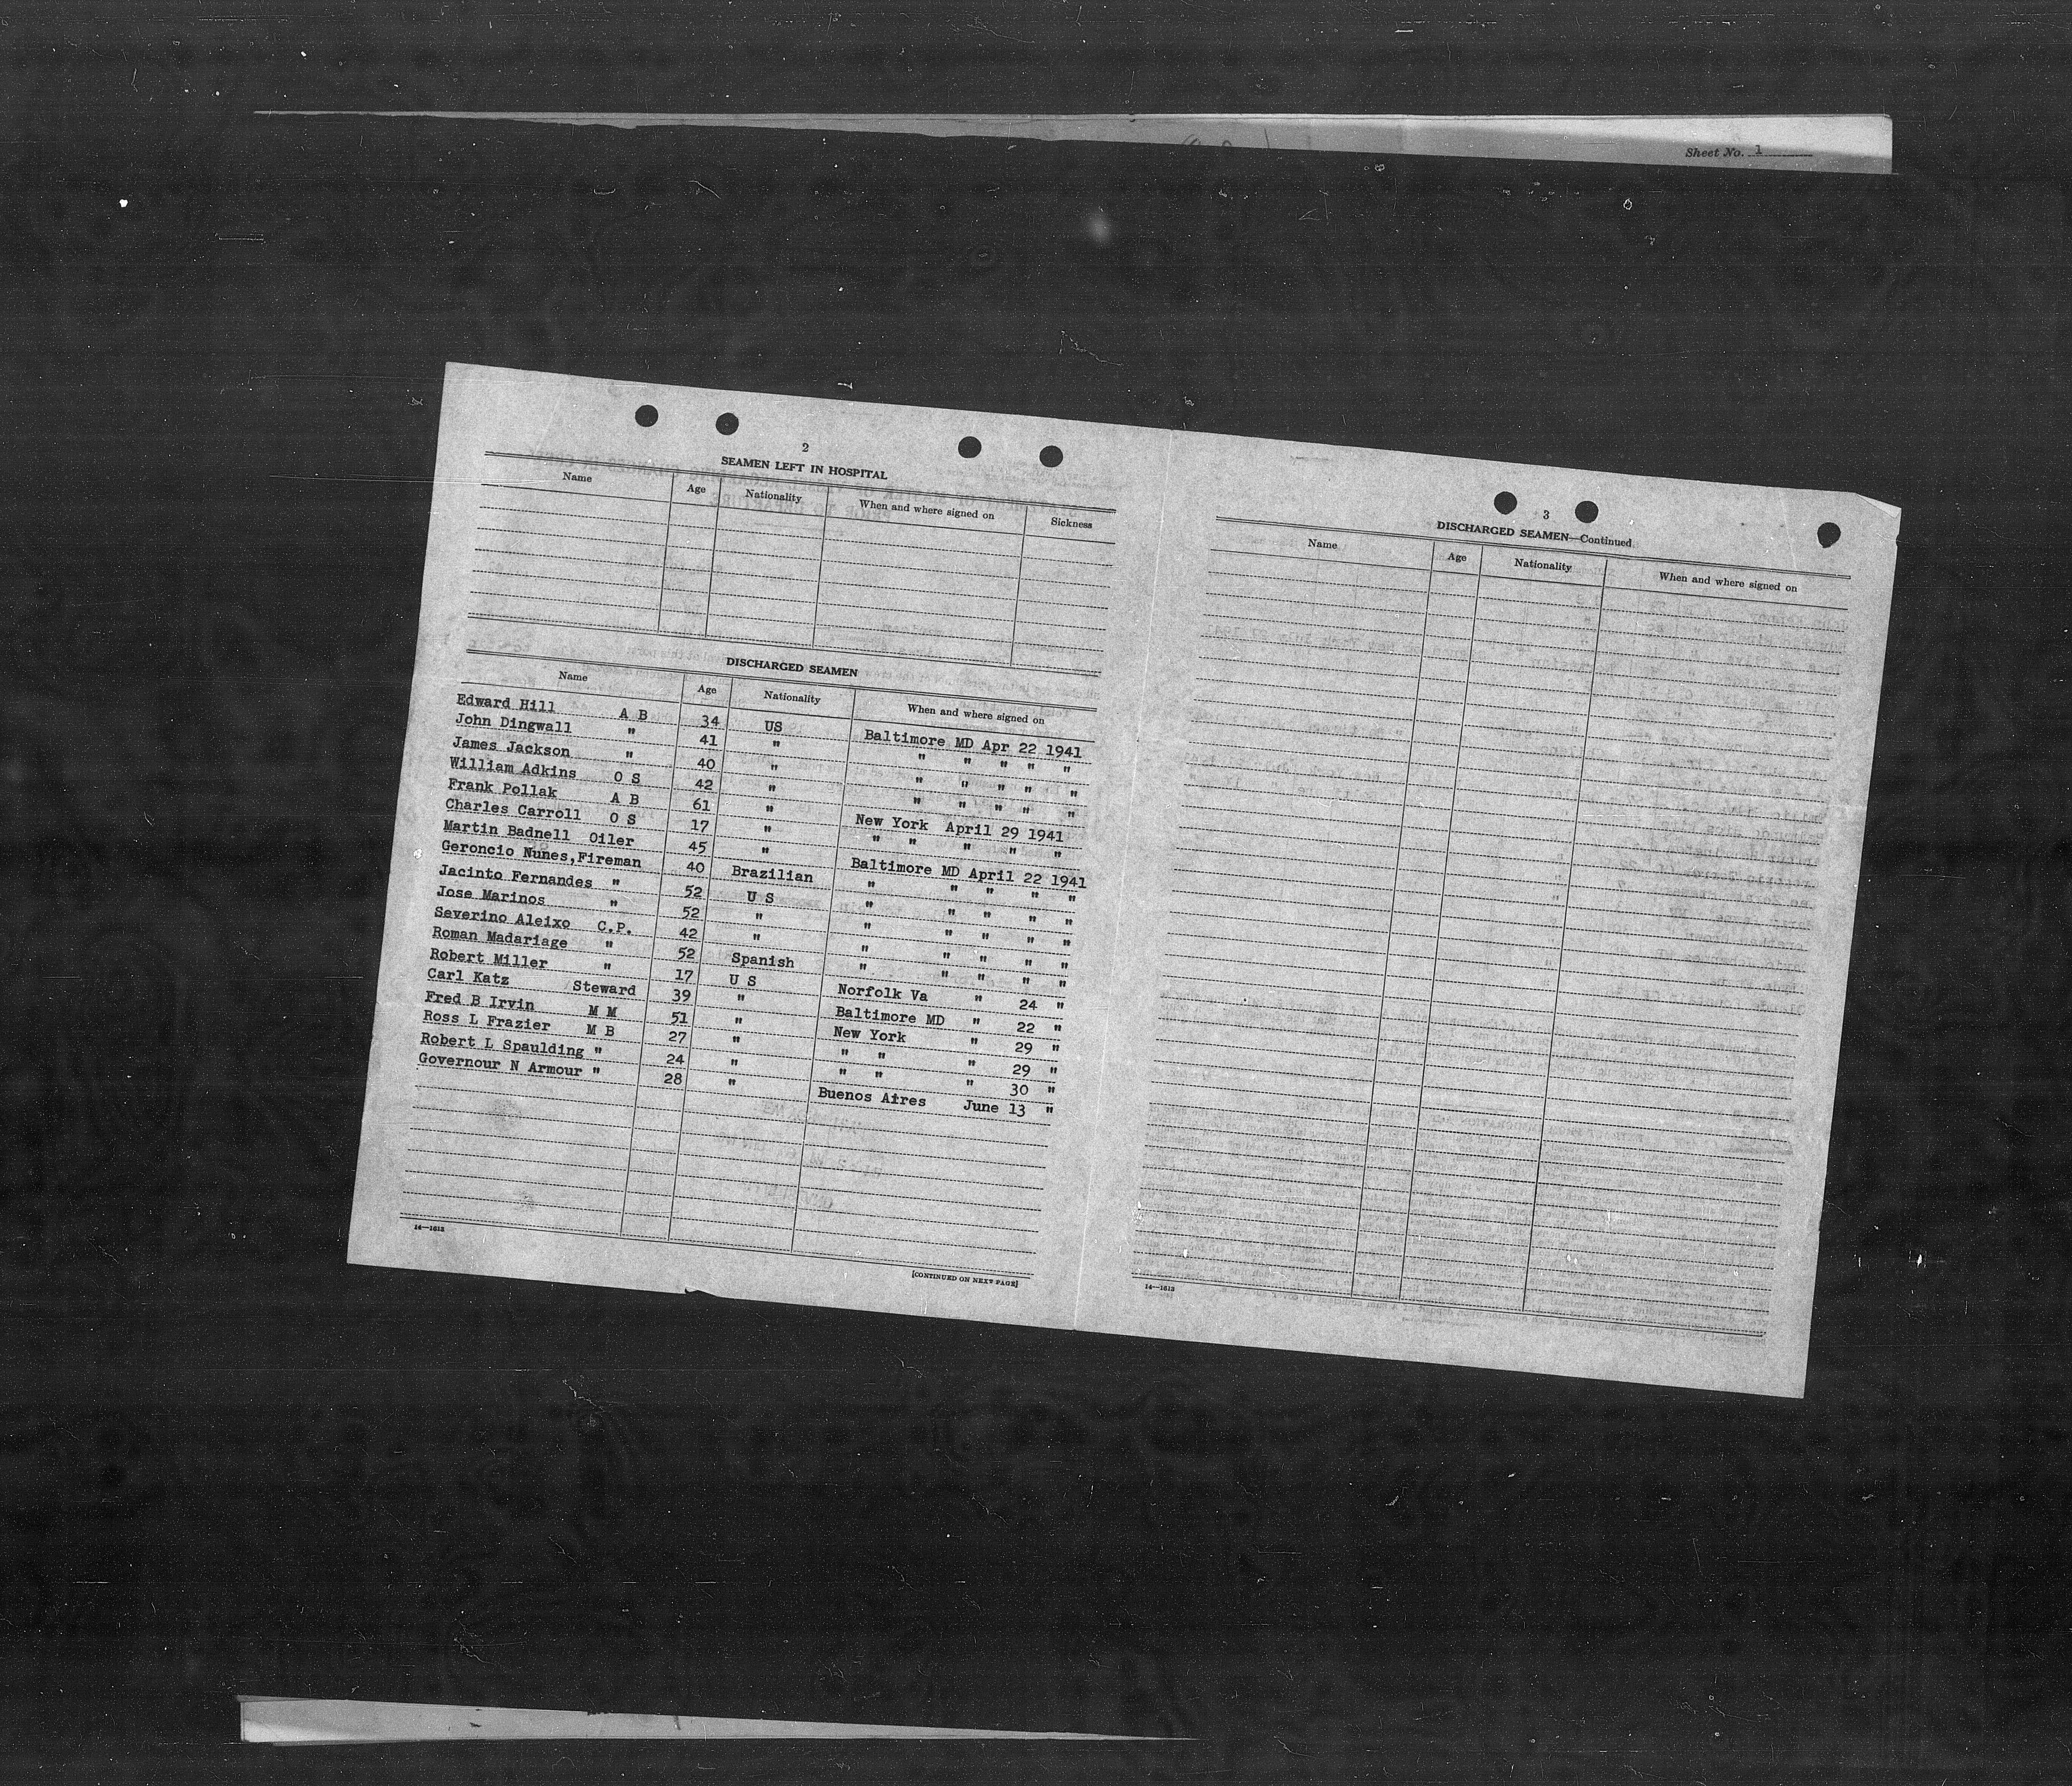 Sheet No. 1
2
SEAMEN LEFT IN HOSPITAL
Name Age Nationality When and where signed on Sickness
DISCHARGED SEAMEN
Name Age Nationality When and where signed on
Edward Hill A B 34 US Baltimore MD Apr 22 1941
John Dingwall " 41 " " " " " "
James Jackson " 40 " " " " " "
William Adkins O S 42 " " " " " "
Frank Pollak A B 61 " New York April 29 1941
Charles Carroll O S 17 " " " " " "
Martin Badnell Oiler 45 " Baltimore MD April 22 1941
Geroncio Nunes,Fireman 40 Brazilian " " " " "
Jacinto Fernandes " 52 U S " " " " "
Jose Marinos " 52 " " " " " "
Severino Aleixo C.P. 42 " " " " " "
Roman Madariage " 52 Spanish " " " " "
Robert Miller " 17 U S Norfolk Va " 24 "
Carl Katz Steward 39 " Baltimore MD " 22 "
Fred B Irvin M M 51 " New York " 29 "
Ross L Frazier M B 27 " " " " 29 "
Robert L Spaulding " 24 " " " " 30 "
Governour N Armour " 28 " Buenos Aires June 13 "
14—1613
[CONTINUED ON NEXT PAGE]
3
DISCHARGED SEAMEN—Continued
Name Age Nationality When and where signed on
14—1613